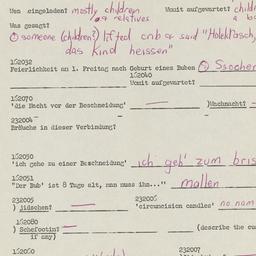 Wen eingeladen? mostly children Womit aufgewartet? child
or relatives
Was gesagt?
① someone (children?) lifted crib & said "Holekrasch,
das Kind heissen"
152032
Feierlichkeit am 1. Freitag nach Geburt eines Buben ② Ssocher
152040
Womit aufgewartet?
152070
'die Nacht vor der Beschneidung' — )Wachnacht? -
232004 —
Bräuche in dieser Verbindung?
152050
'ich gehe zu einer Beschneidung' ich geh' zum bris
152051
"Der Bub' ist 8 Tage alt, man muss ihn..." mallen
232005 232006
) jidschen? — 'circumcision candles' no nam
152080
) Schefoctin? — (describe the cu
if any)
152060 232007